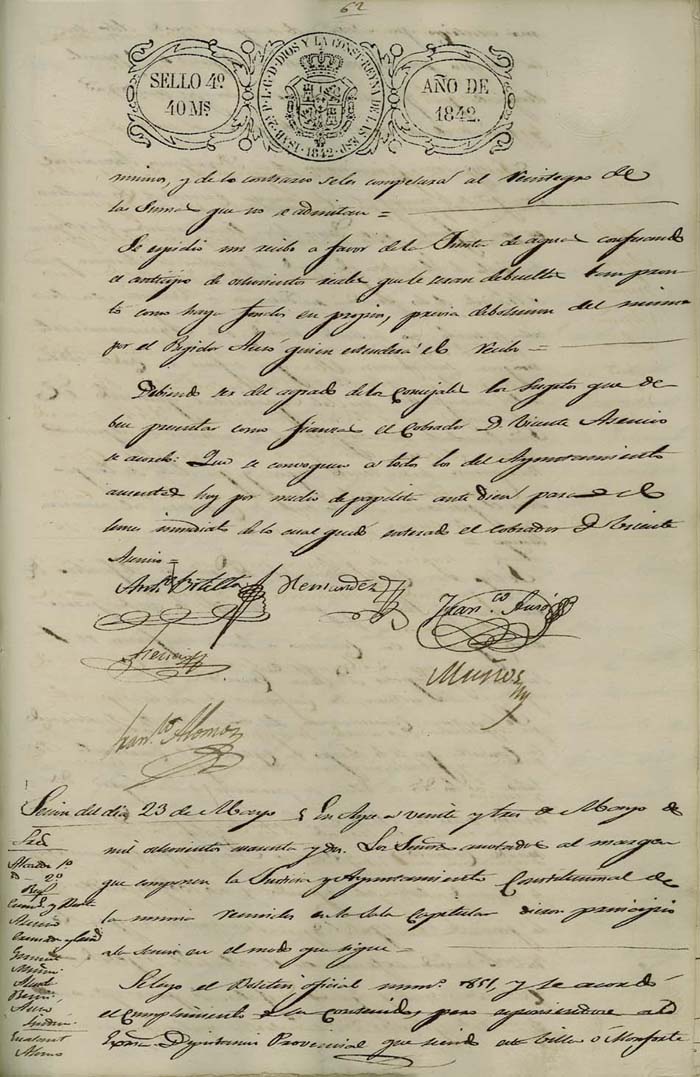 62
SELLO 4º
40 Ms.
ISAB. 2ª P. L. G. D. DIOS Y LA CONST. REYNA DE LAS ESP.
1842
AÑO DE
1842.
mismos, y de lo contrario se les compelerá al reintegro de
las sumas que no se admitan =
Se espidio un recibo a favor de la Junta de aguas confesando
el anticipo de ochocientos reales que le seran debueltos tan pron
to como haya fondos en propios, previa debolucion del mismo
por el Regidor Ausó quien estenderá el recibo =
Debiendo ser del agrado de los Concejales los sugetos que de
ben presentar como fianzas el Cobrador D. Vicente Asencio
se acordó: Que se convoquen a todos los del Ayuntamiento
ausentes hoy por medio de papeleta ante diem para el
lunes inmediato de lo cual quedó enterado el cobrador D. Vicente
Asencio =
Antº Botella
Hernandez
Franco. Ausó
Asencio
Muños
Franco Alonso
Sesion del dia 23 de Mayo
En Aspe a veinte y tres de Mayo de
mil ochocientos cuarenta y dos. Los Señores anotados al margen
que componen la Justicia y Ayuntamiento Constitucional de
la misma reunidos en la Sala Capitular dieron principio
a la sesion en el modo que sigue
Sres.
Alcalde 1º
D. 2º
Reg.
Asencio
Muños
Ausó
Alonso
Se leyo el Boletin oficial num.º 851, y se acordó
el cumplimiento de lo contenido, pero
Exma. Diputacion Provincial que siendo esta Villa o Monforte